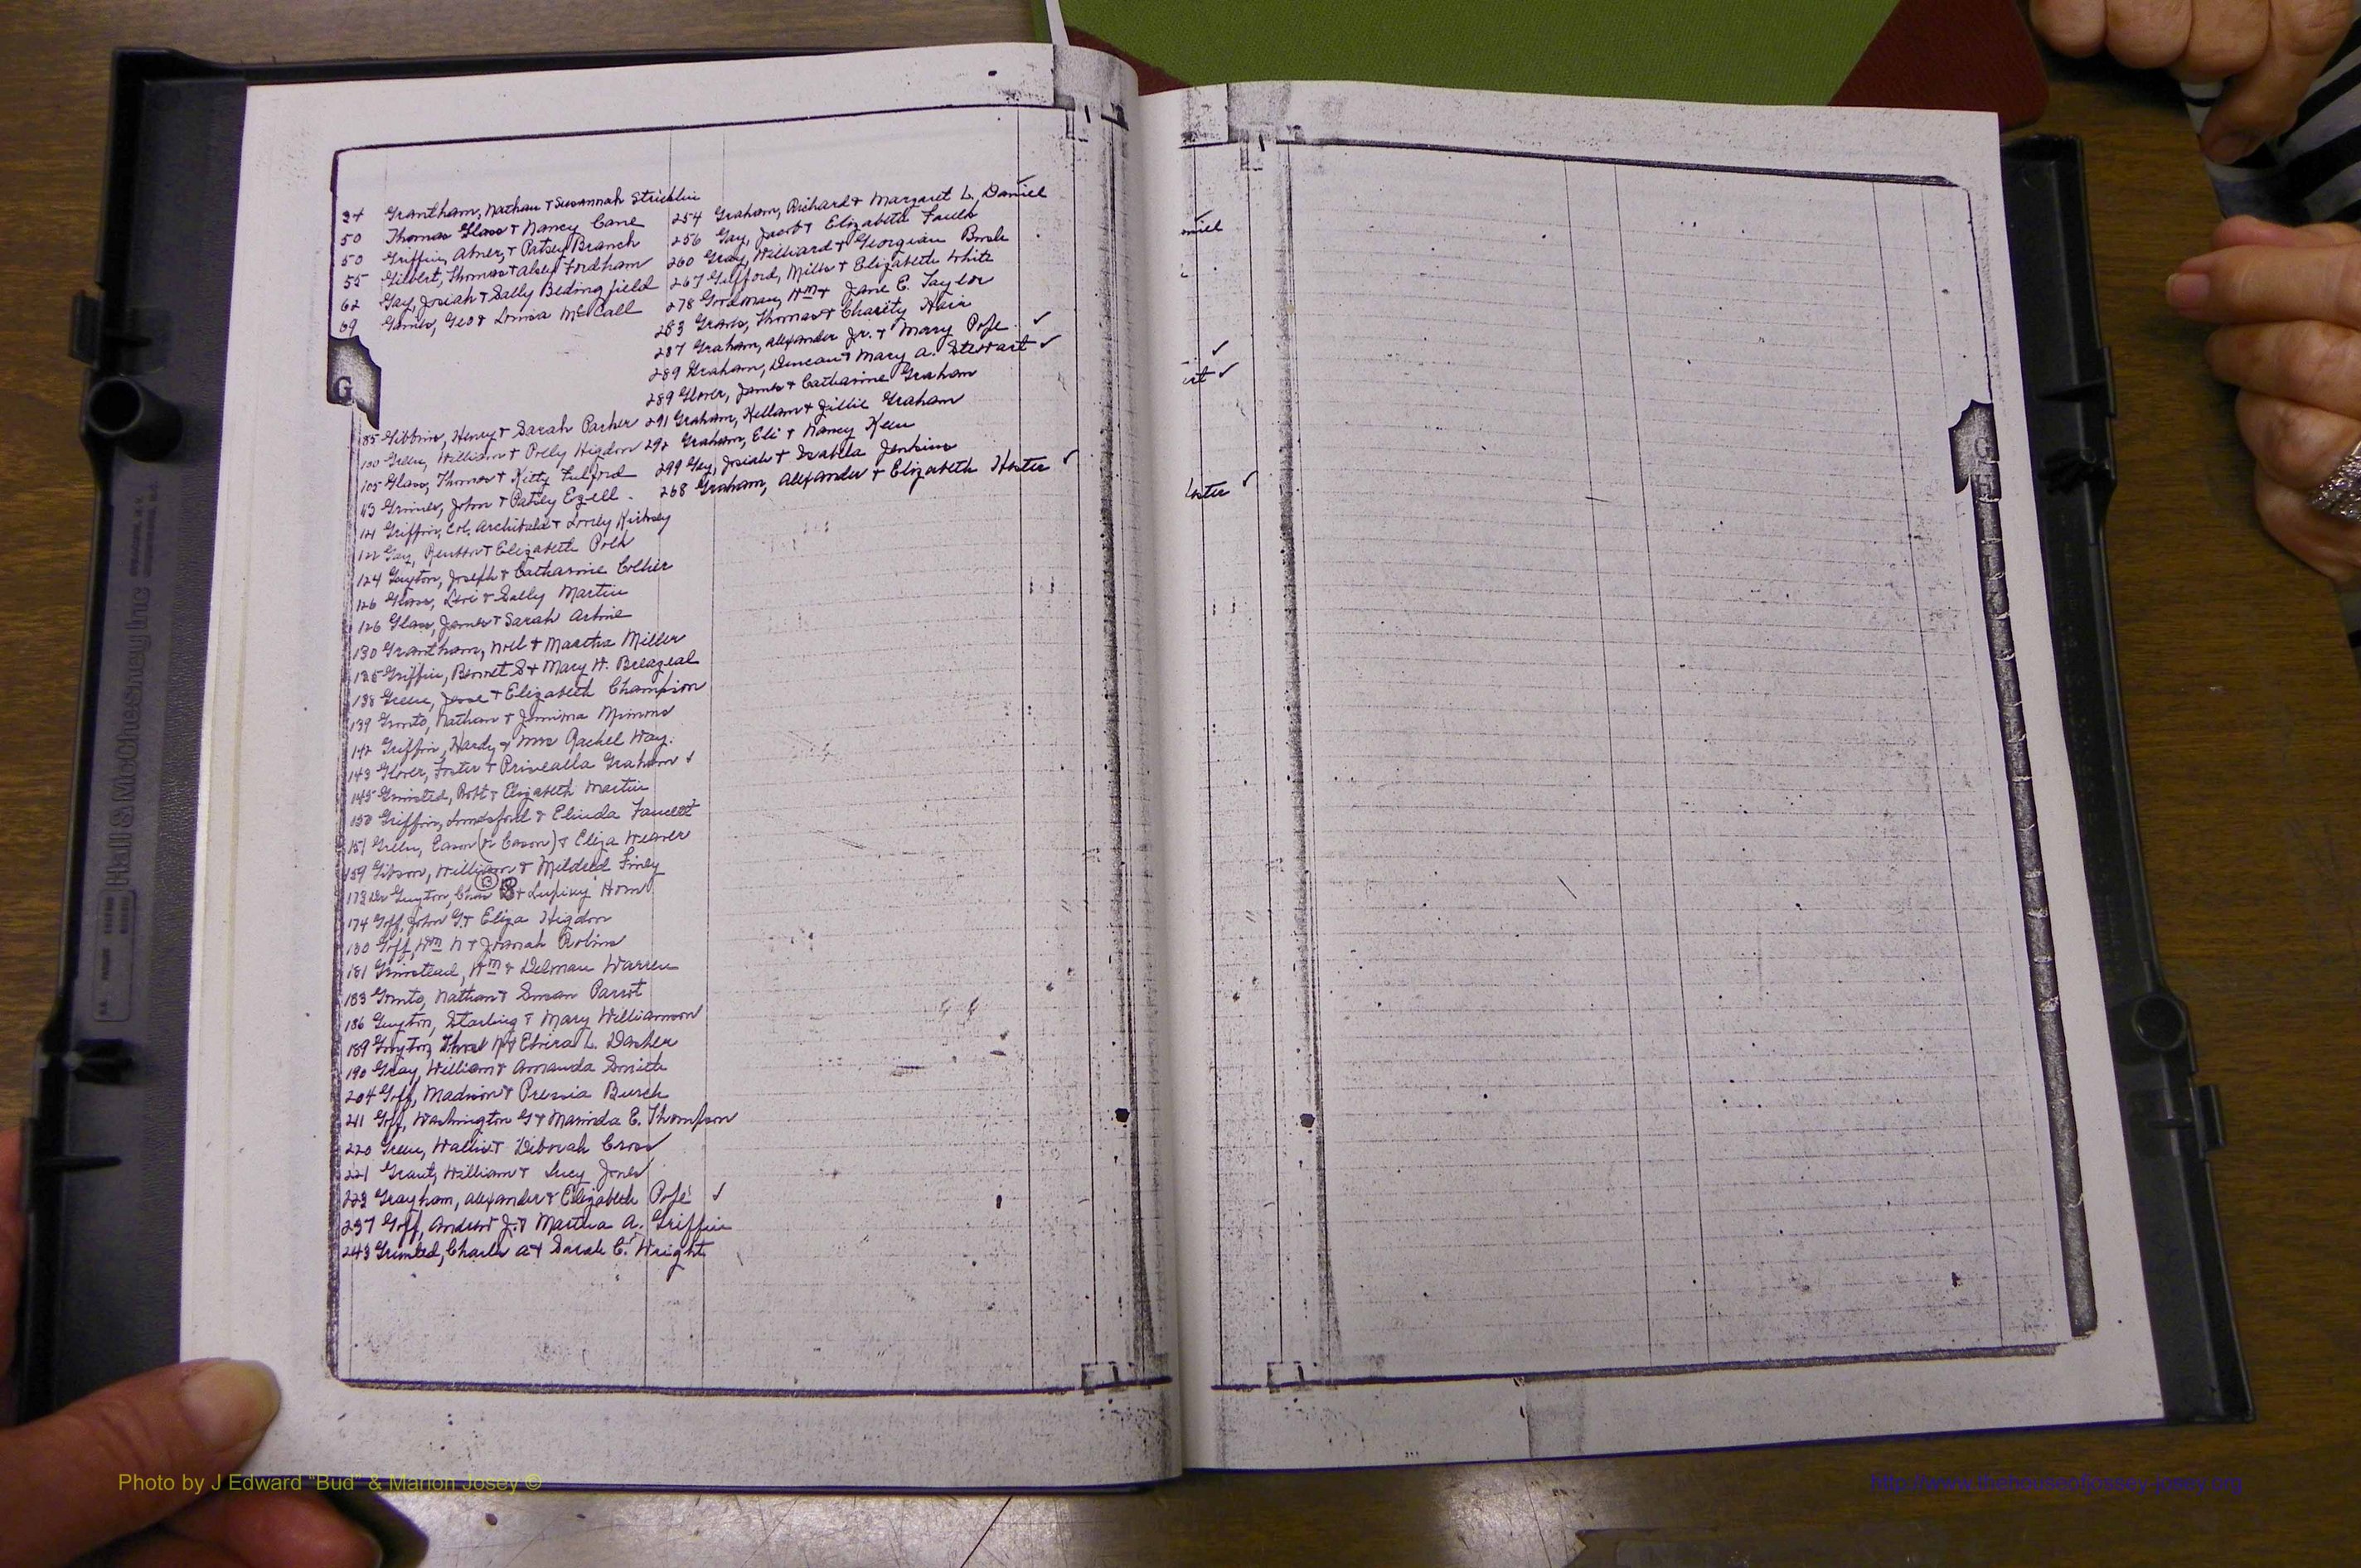 34 Grantham, Nathan & Susannah Stricklin
50 Thomas Glass & Nancy Cane
50 Griffin, Abner, & Patsey Branch
55 Gilbert, Thomas & Alsey Fordham
62 Gay, Josiah & Sally Bedingfield
69 Geo & Louisa McCall
G
Gibbins, Henry & Sarah Parker
100 Green, William & Polly Higdon
105 Glass, Thomas & Kitty Fulford
Grimes, John & Patsey Ezell
121 Griffin, Col. Archibald & Lovely Kirksey
122 Gay, & Elizabeth
124 Guyton, Joseph & Catharine Collier
126 Glass, Levi & Sally Martin
126 Glass, James & Sarah
130 Grantham, & Martha Miller
135 Griffin, Bennet S & Mary H. Breazeal
138 Green, Jesse & Elizabeth Champion
139 Gonto, Nathan & Jemima Mimms
142 Griffin, Hardy & Mrs Rachel Way.
143 Glover, Foster & Privealla Graham ✓
145 Robt & Elizabeth Martin
150 Griffin, & Elinda Faucett
151 Green, Eason (or Cason) & Eliza Weaver
159 Gibson, William & Mildred Finley
173 Dr Guyton, Chas B & Horn
174 Goff, John G & Eliza Higdon
180 Goff, Wm N & Robins
181 Grinstead, Wm & Delman Warren
183 Gonto, Nathan & Susan Parrot
186 Guyton, Starling & Mary Williamson
189 Guyton, & Elvira L. Dasher
190 Gray, William & Amanda Smith
204 Goff, Madison & Burch
211 Goff, Washington G & Marinda E. Thompson
220 Green, Wallis & Deborah Cross
221 Grant, William & Lucy Jones
Grayham, Alexander & Elizabeth Pope ✓
237 Goff, Andrew J. & Martha A. Griffin
243 Charles A & Sarah E. Wright
254 Graham, Richard & Margaret L. Daniel
256 Gay, Jacob & Elizabeth Faulk
260 Gray, Williard & Georgian
267 Gufford, Mills & Elizabeth White
278 Goodman, Wm & Jane E. Taylor
283 Thomas & Charity Hair
287 Graham, Alexander Jr. & Mary Pope ✓
289 Graham, Duncan & Mary A. Stewart ✓
289 Glover, James & Catharine Graham
291 Graham, Kellam & Zillie Graham
292 Graham, Eli & Nancy Keen
299 Gay, Josiah & Isabella Jenkins
268 Graham, Alexander & Elizabeth Hester ✓
G
Hall & McChesney Inc
Photo by J Edward "Bud" & Marion Josey ©
http://www.thehouseofjossey-josey.org